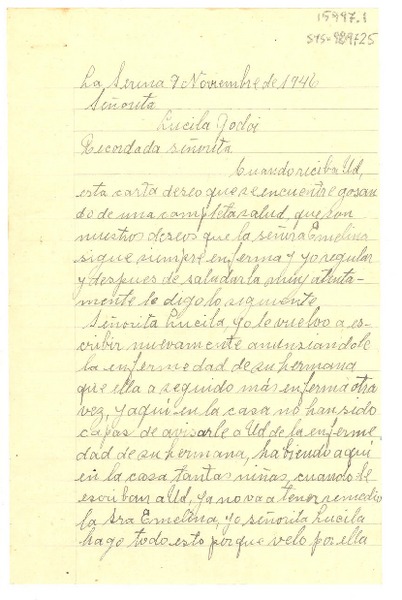 15997.1
sys-989725
La Serena 9 Noviembre de 1946
Señorita
Lucila Godoi
Recordada señorita
Cuando reciba Ud,
esta carta deseo que se encuentre gosan
do de una completa salud, que son
nuestros deseos que la señora Emelina
sigue siempre enferma y yo regular
y despues de saludarla muy atenta-
mente le digo lo siguiente
Señorita Lucila, yo le vuelvo a es-
cribir nuevamente anunsiandole
la enfermedad de su hermana
que ella a seguido más enferma otra
vez, y aquí en la casa no han sido
capas de avisarle a Ud de la enferme-
dad de su hermana, habiendo aquí
en la casa tantas niñas, cuando le
escriban a Ud, ya no va a tener remedio
la Sra Emelina, yo señorita Lucila
hago todo esto porque velo por ella